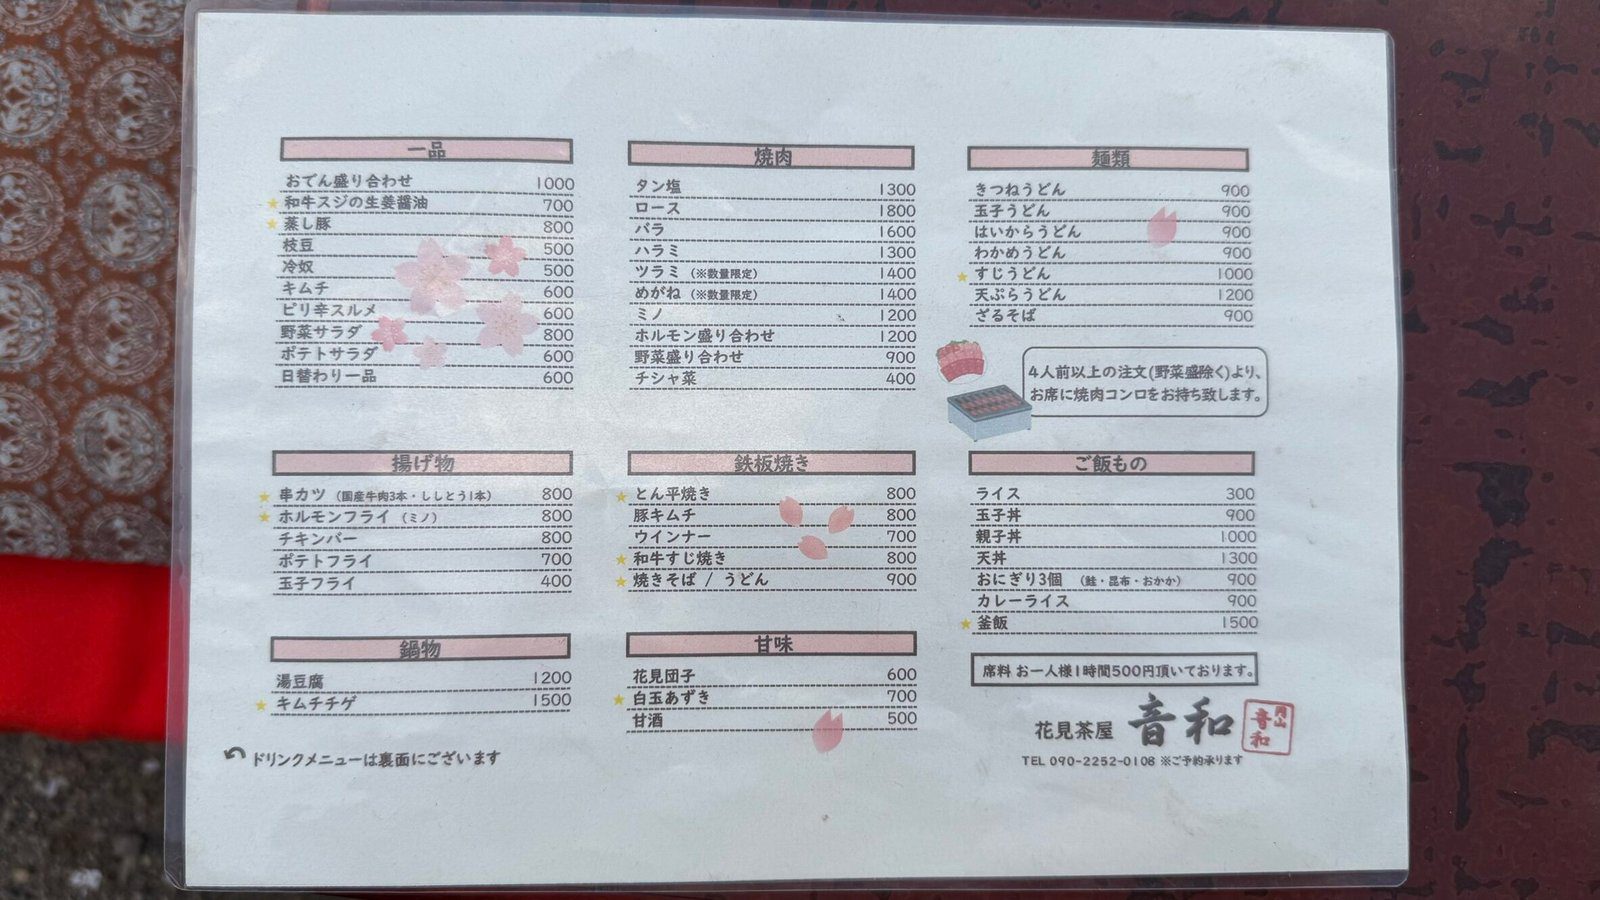 一品
おでん盛り合わせ 1000
★和牛スジの生姜醤油 700
★蒸し豚 800
枝豆 500
冷奴 500
キムチ 600
ピリ辛スルメ 600
野菜サラダ 800
ポテトサラダ 600
日替わり一品 600
焼肉
タン塩 1300
ロース 1800
バラ 1600
ハラミ 1300
ツラミ (※数量限定) 1400
めがね (※数量限定) 1400
ミノ 1200
ホルモン盛り合わせ 1200
野菜盛り合わせ 900
チシャ菜 400
麺類
きつねうどん 900
玉子うどん 900
はいからうどん 900
わかめうどん 900
★すじうどん 1000
天ぷらうどん 1200
ざるそば 900
4人前以上の注文(野菜盛除く)より、
お席に焼肉コンロをお持ち致します。
揚げ物
★串カツ (国産牛肉3本・ししとう1本) 800
★ホルモンフライ (ミノ) 800
チキンバー 800
ポテトフライ 700
玉子フライ 400
鉄板焼き
★とん平焼き 800
豚キムチ 800
ウインナー 700
★和牛すじ焼き 800
★焼きそば / うどん 900
ご飯もの
ライス 300
玉子丼 900
親子丼 1000
天丼 1300
おにぎり3個 (鮭・昆布・おかか) 900
カレーライス 900
★釜飯 1500
鍋物
湯豆腐 1200
★キムチチゲ 1500
甘味
花見団子 600
★白玉あずき 700
甘酒 500
席料 お一人様1時間500円頂いております。
花見茶屋 音和
円山
音和
TEL 090-2252-0108 ※ご予約承ります
ドリンクメニューは裏面にございます